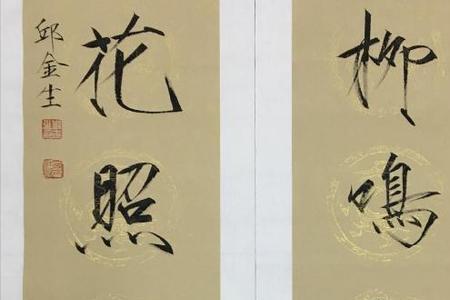 柳鳴
花照
邱金生